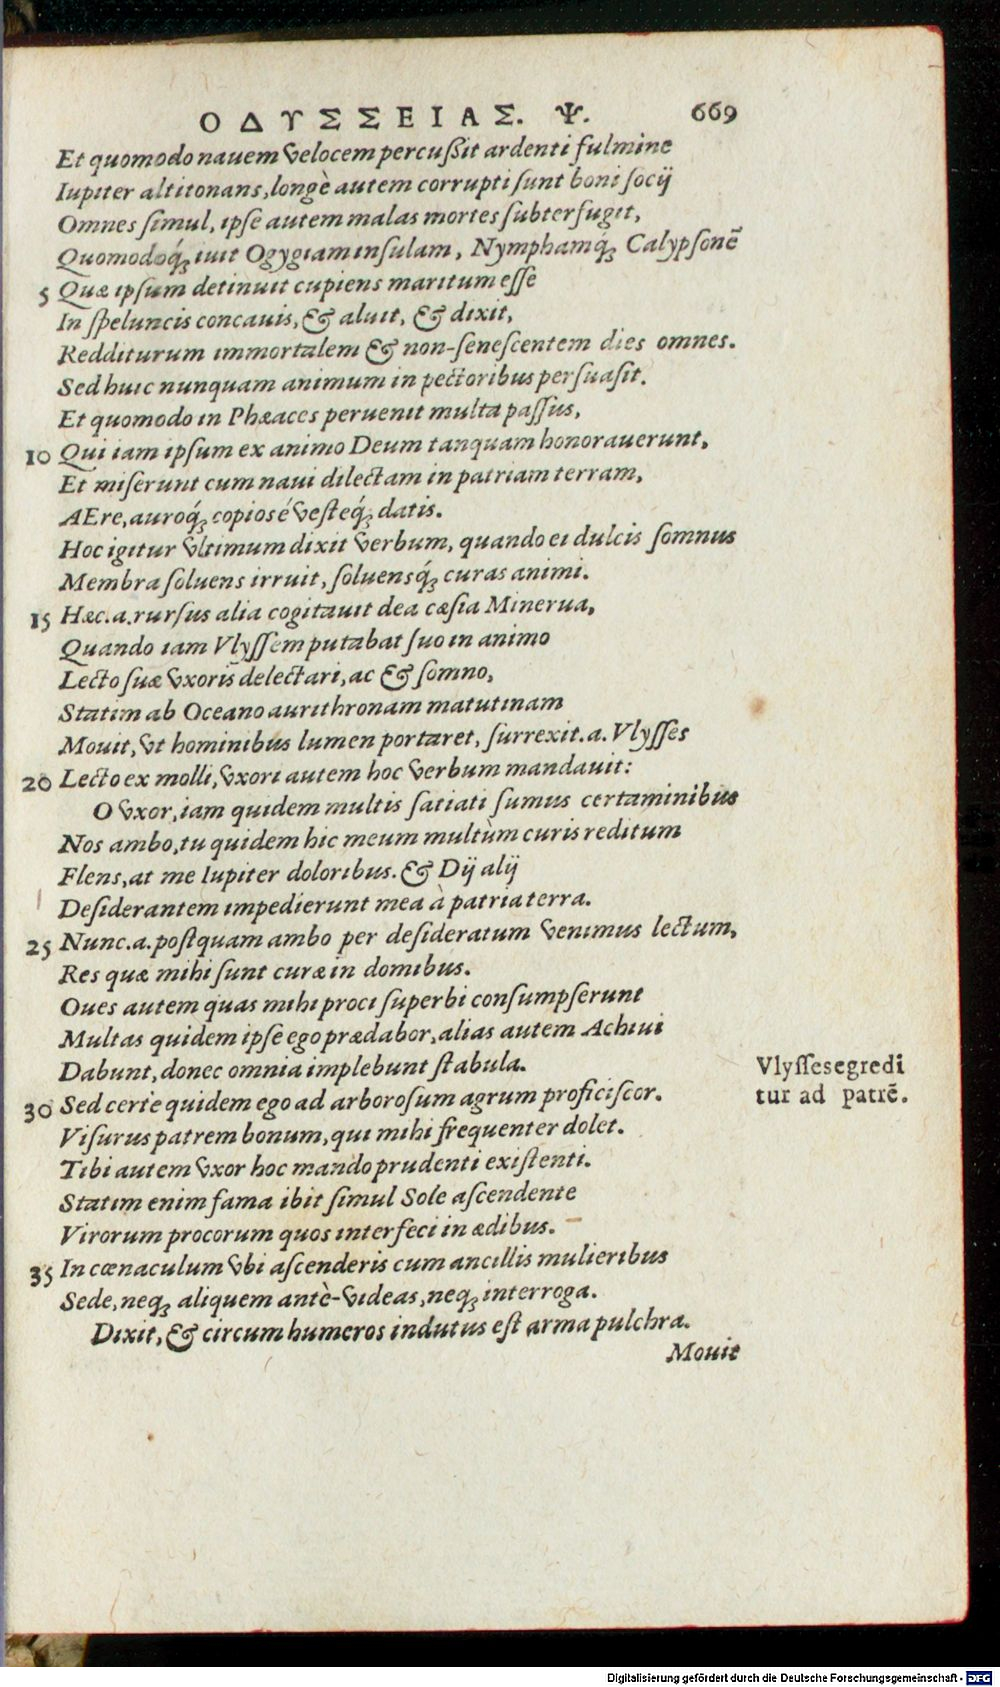 ΟΔΥΣΣΕΙΑΣ. Ψ. 669
Et quomodo nauem velocem percußit ardenti fulmine
Iupiter altitonans, longè autem corrupti sunt boni socij
Omnes simul, ipse autem malas mortes subterfugit,
Quomodoq́; iuit Ogygiam insulam, Nymphamq́; Calypsonē
5 Quæ ipsum detinuit cupiens maritum esse
In speluncis concauis, & aluit, & dixit,
Redditurum immortalem & non-senescentem dies omnes.
Sed huic nunquam animum in pectoribus persuasit.
Et quomodo in Phæaces peruenit multa passus,
10 Qui iam ipsum ex animo Deum tanquam honorauerunt,
Et miserunt cum naui dilectam in patriam terram,
AEre, auroq́; copiosé vesteq́; datis.
Hoc igitur vltimum dixit verbum, quando ei dulcis somnus
Membra soluens irruit, soluensq́; curas animi.
15 Hæc.a.rursus alia cogitauit dea cæsia Minerua,
Quando iam Vlyssem putabat suo in animo
Lecto suæ vxoris delectari, ac & somno,
Statim ab Oceano aurithronam matutinam
Mouit, vt hominibus lumen portaret, surrexit.a. Vlysses
20 Lecto ex molli, vxori autem hoc verbum mandauit:
O vxor, iam quidem multis satiati sumus certaminibus
Nos ambo, tu quidem hic meum multùm curis reditum
Flens, at me Iupiter doloribus. & Dij alij
Desiderantem impedierunt mea à patria terra.
25 Nunc.a. postquam ambo per desideratum venimus lectum,
Res quæ mihi sunt curæ in domibus.
Oues autem quas mihi proci superbi consumpserunt
Multas quidem ipse ego prædabor, alias autem Achiui
Dabunt, donec omnia implebunt stabula.
Vlysses egredi
tur ad patrē.
30 Sed certe quidem ego ad arborosum agrum proficiscor.
Visurus patrem bonum, qui mihi frequenter dolet.
Tibi autem vxor hoc mando prudenti existenti.
Statim enim fama ibit simul Sole ascendente
Virorum procorum quos interfeci in ædibus.
35 In cœnaculum vbi ascenderis cum ancillis mulieribus
Sede, neq; aliquem antè-videas, neq; interroga.
Dixit, & circum humeros indutus est arma pulchra.
Mouit
Digitalisierung gefördert durch die Deutsche Forschungsgemeinschaft - DFG